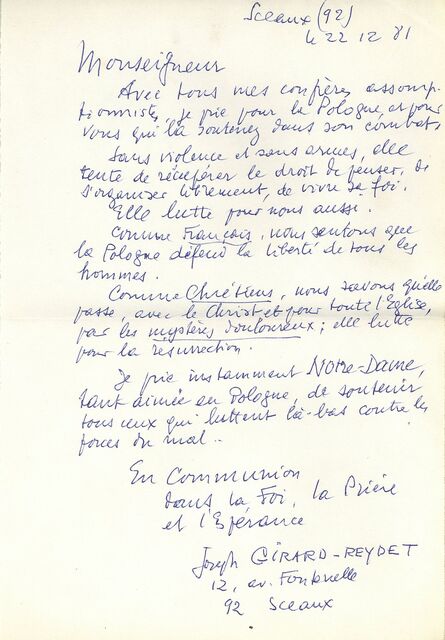 Sceaux (92)
le 22 12 81
Monseigneur
Avec tous mes confrères assomp-
tionnistes, je prie pour la Pologne, et pour
vous qui la soutenez dans son combat.
Sans violence et sans armes, elle
tente de récupérer le droit de penser, de
s'organiser librement, de vivre sa foi.
Elle lutte pour nous aussi.
Comme Français, nous sentons que
la Pologne défend la liberté de tous les
hommes.
Comme Chrétiens, nous savons qu'elle
passe, avec le Christ et pour toute l'Eglise,
par les mystères douloureux ; elle lutte
pour la résurrection.
Je prie instamment Notre-Dame,
tant aimée en Pologne, de soutenir
tous ceux qui luttent là-bas contre les
forces du mal..
En Communion
dans la Foi, la Prière
et l'Espérance
Joseph GIRARD-REYDET
12, av. Fontenelle
92 Sceaux